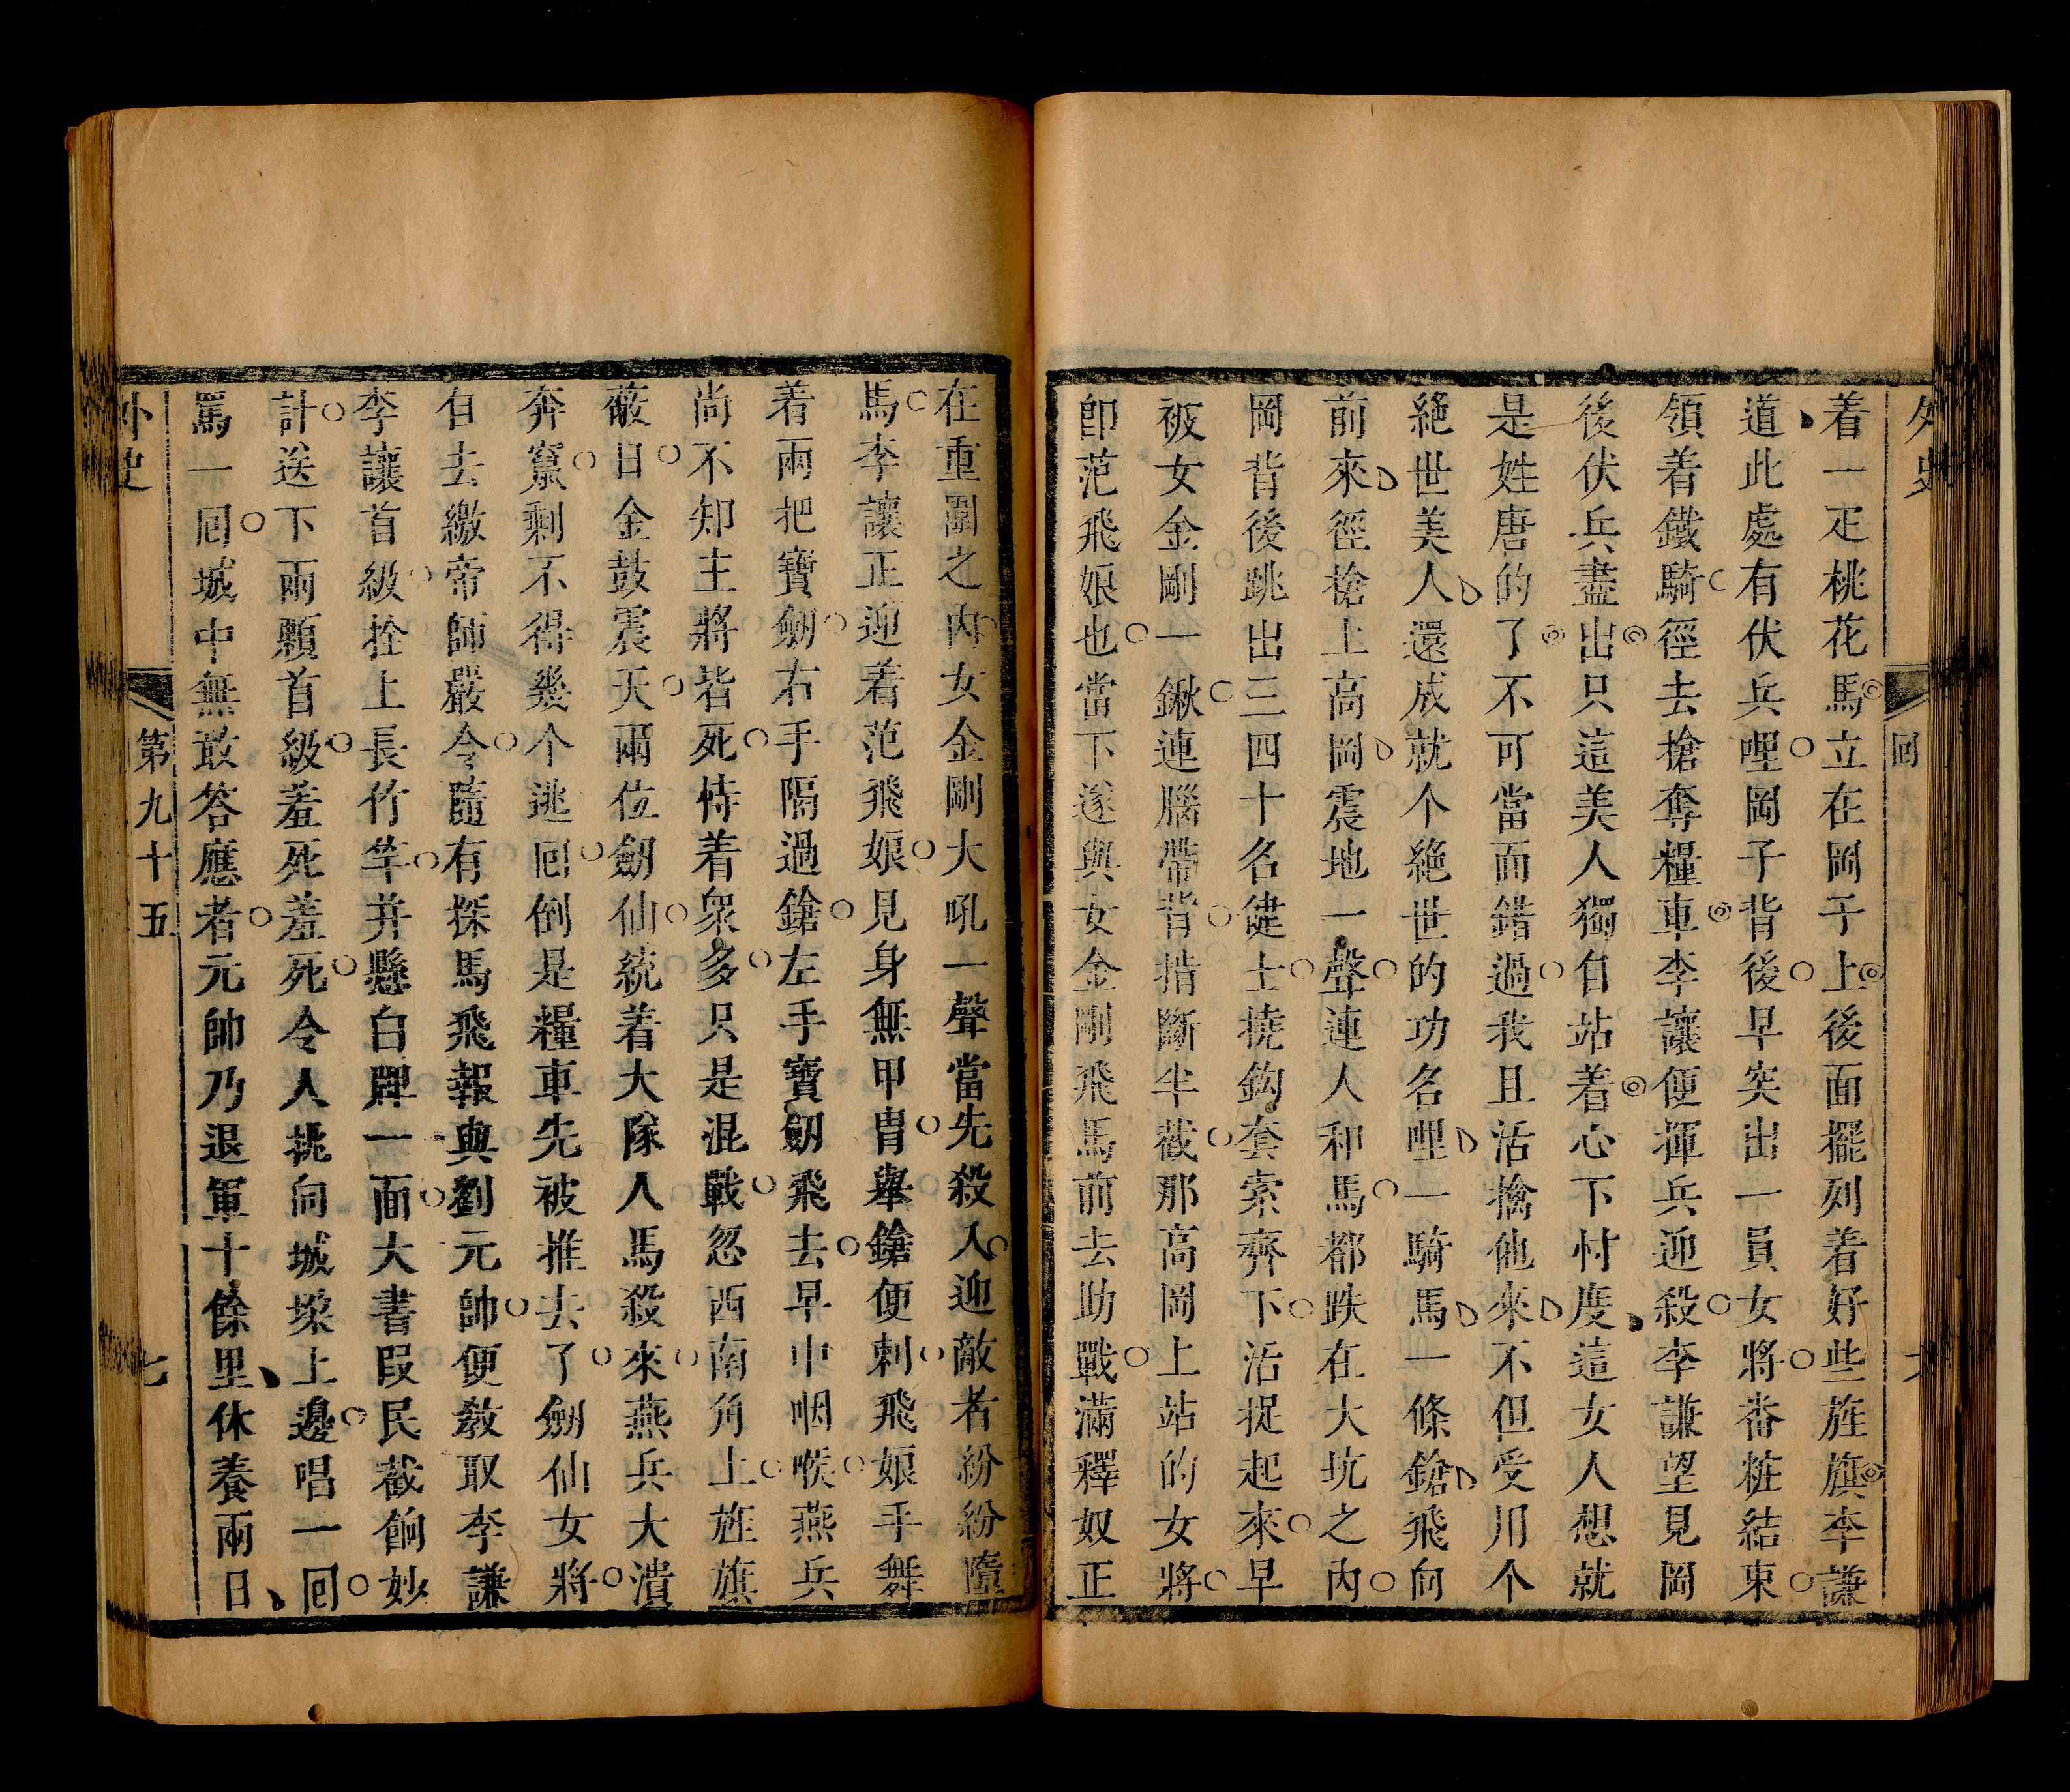 外史
回
着一疋桃花馬立在岡于上後面擺列着好些旌旗李謙
道此處有伏兵哩岡子背後早突出一員女將畨粧結束
領着鐵騎徑去搶奪糧車李讓便揮兵迎殺李謙望見岡
後伏兵盡出只這美人獨自站着心下忖度這女人想就
是姓唐的了不可當面錯過我且活擒他來不但受用个
絕世美人還成就个絕世的功名哩一騎馬一條鎗飛向
前來徑搶上高岡震地一聲連人和馬都跌在大坑之內
岡背後跳出三四十名健士撓鈎套索齊下活捉起來早
被女金剛一鍬連腦帶背揹斷半截那高岡上站的女將
卽范飛娘也當下遂與女金剛飛馬前去助戰滿釋奴正
在重圍之內女金剛大吼一聲當先殺入迎敵者紛紛墮
馬李讓正迎着范飛娘見身無甲冑舉鎗便刺飛娘手舞
着兩把寶劒右手隔過鎗左手寶劒飛去早中咽喉燕兵
尚不知主將皆死恃着衆多只是混戰忽西南角上旌旗
蔽日金鼓震天兩位劒仙統着大隊人馬殺來燕兵大潰
奔竄剩不得幾个逃囘倒是糧車先被推去了劒仙女將
自去繳帝師嚴令隨有探馬飛報與劉元帥便教取李謙
李讓首級拴上長竹竿并懸白牌一面大書叚民截餉妙
計送下兩顆首級羞死羞死令人挑向城垜上邊唱一囘
罵一囘城中無敢答應者元帥乃退軍十餘里休養兩日
外史
第九十五
七